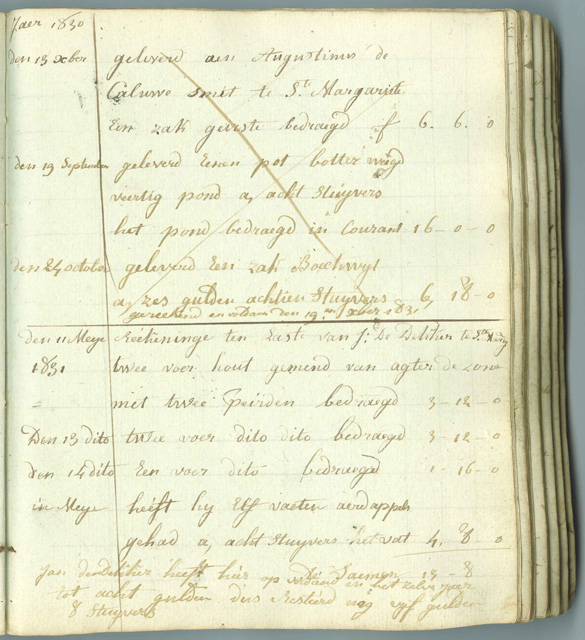 Jaer 1830
den 13 xber geleverd aen Augustinus de
Caluwe smit te St Margariete
Een zak gerste bedraegd f 6. 6. 0
den 19 September geleverd Eenen pot botter weegd
veertig pond a, acht Stuyvers
het pond bedraegd in Courant 16 - 0 - 0
den 24 october geleverd Een zak Boekwyt
a, zes gulden achtien Stuyvers 6, 18 - 0
gereekend en voldaen den 19 xber 1831
den 11 Meye Reekeninge ten Laste van J: De te Ste Marg
1831 twee voer hout gemend van agter de
= met twee Peirden bedraegd 3 - 12 - 0
Den 13 dito twee voer dito dito bedraegd 3 - 12 - 0
den 14 dito Een voer dito bedraegd 1 - 16 - 0
in Meye heeft hy Elf vaeten aerdappels
gehad a, acht Stuyvers het vat 4. 8. 0
Jan heeft hier op voldaen in het zelve jaer
De Saemen 13 - 8
tot acht gulden dus Resteerd nog vyf gulden
8 Stuyvers